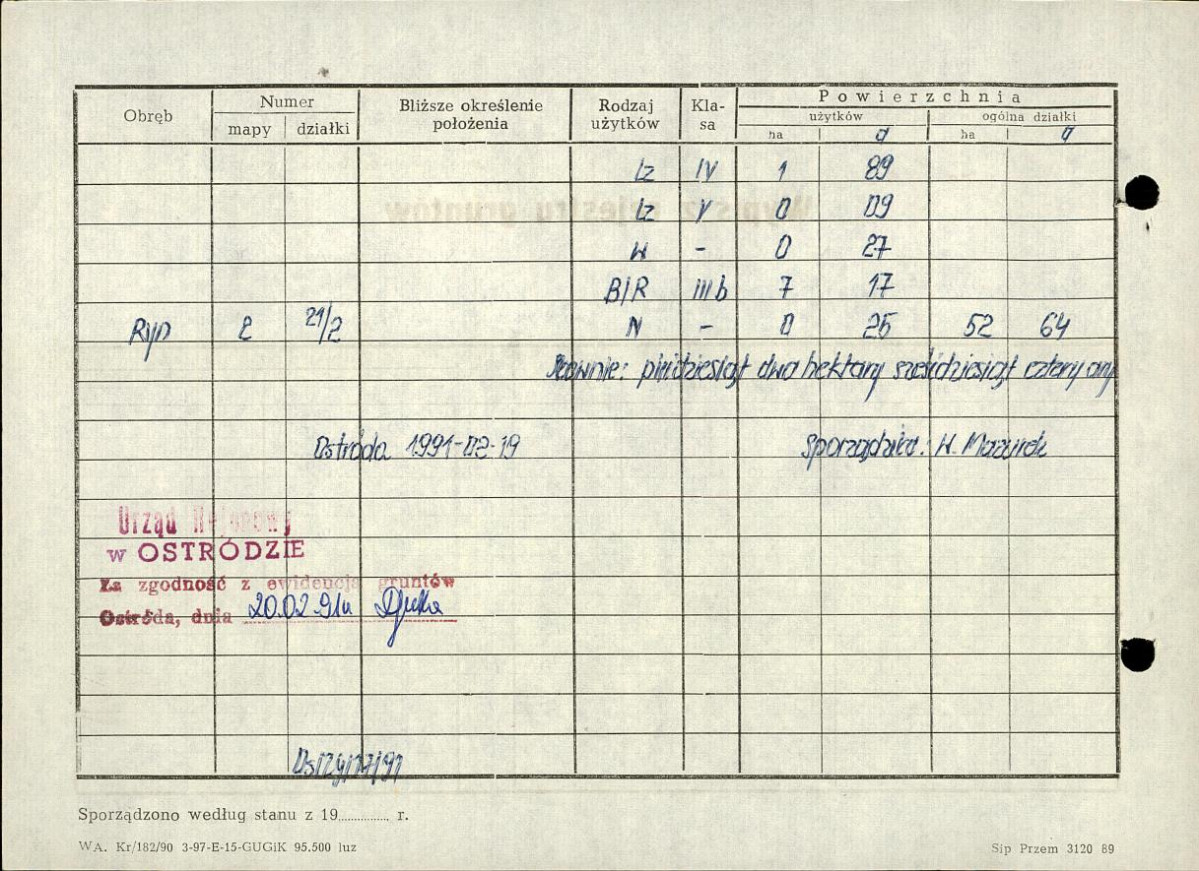 Obręb Numer Bliższe określenie położenia Rodzaj użytków Kla-sa Powierzchnia
mapy działki użytków ogólna działki
ha a ha a
Lz IV 1 89
Lz V 0 09
W - 0 27
B/R IIIb 7 17
Ryn 2 21/2 N - 0 25 52 64
Słownie: pięćdziesiąt dwa hektary sześćdziesiąt cztery ary
Ostróda 1991-02-19 Sporządził: W. Mazurek
Urząd Rejonowy
w OSTRÓDZIE
Za zgodność z ewidencją gruntów
Ostróda, dnia 20.02.91r
Sporządzono według stanu z 19............ r.
WA. Kr/182/90 3-97-E-15-GUGiK 95.500 luz Sip Przem 3120 89